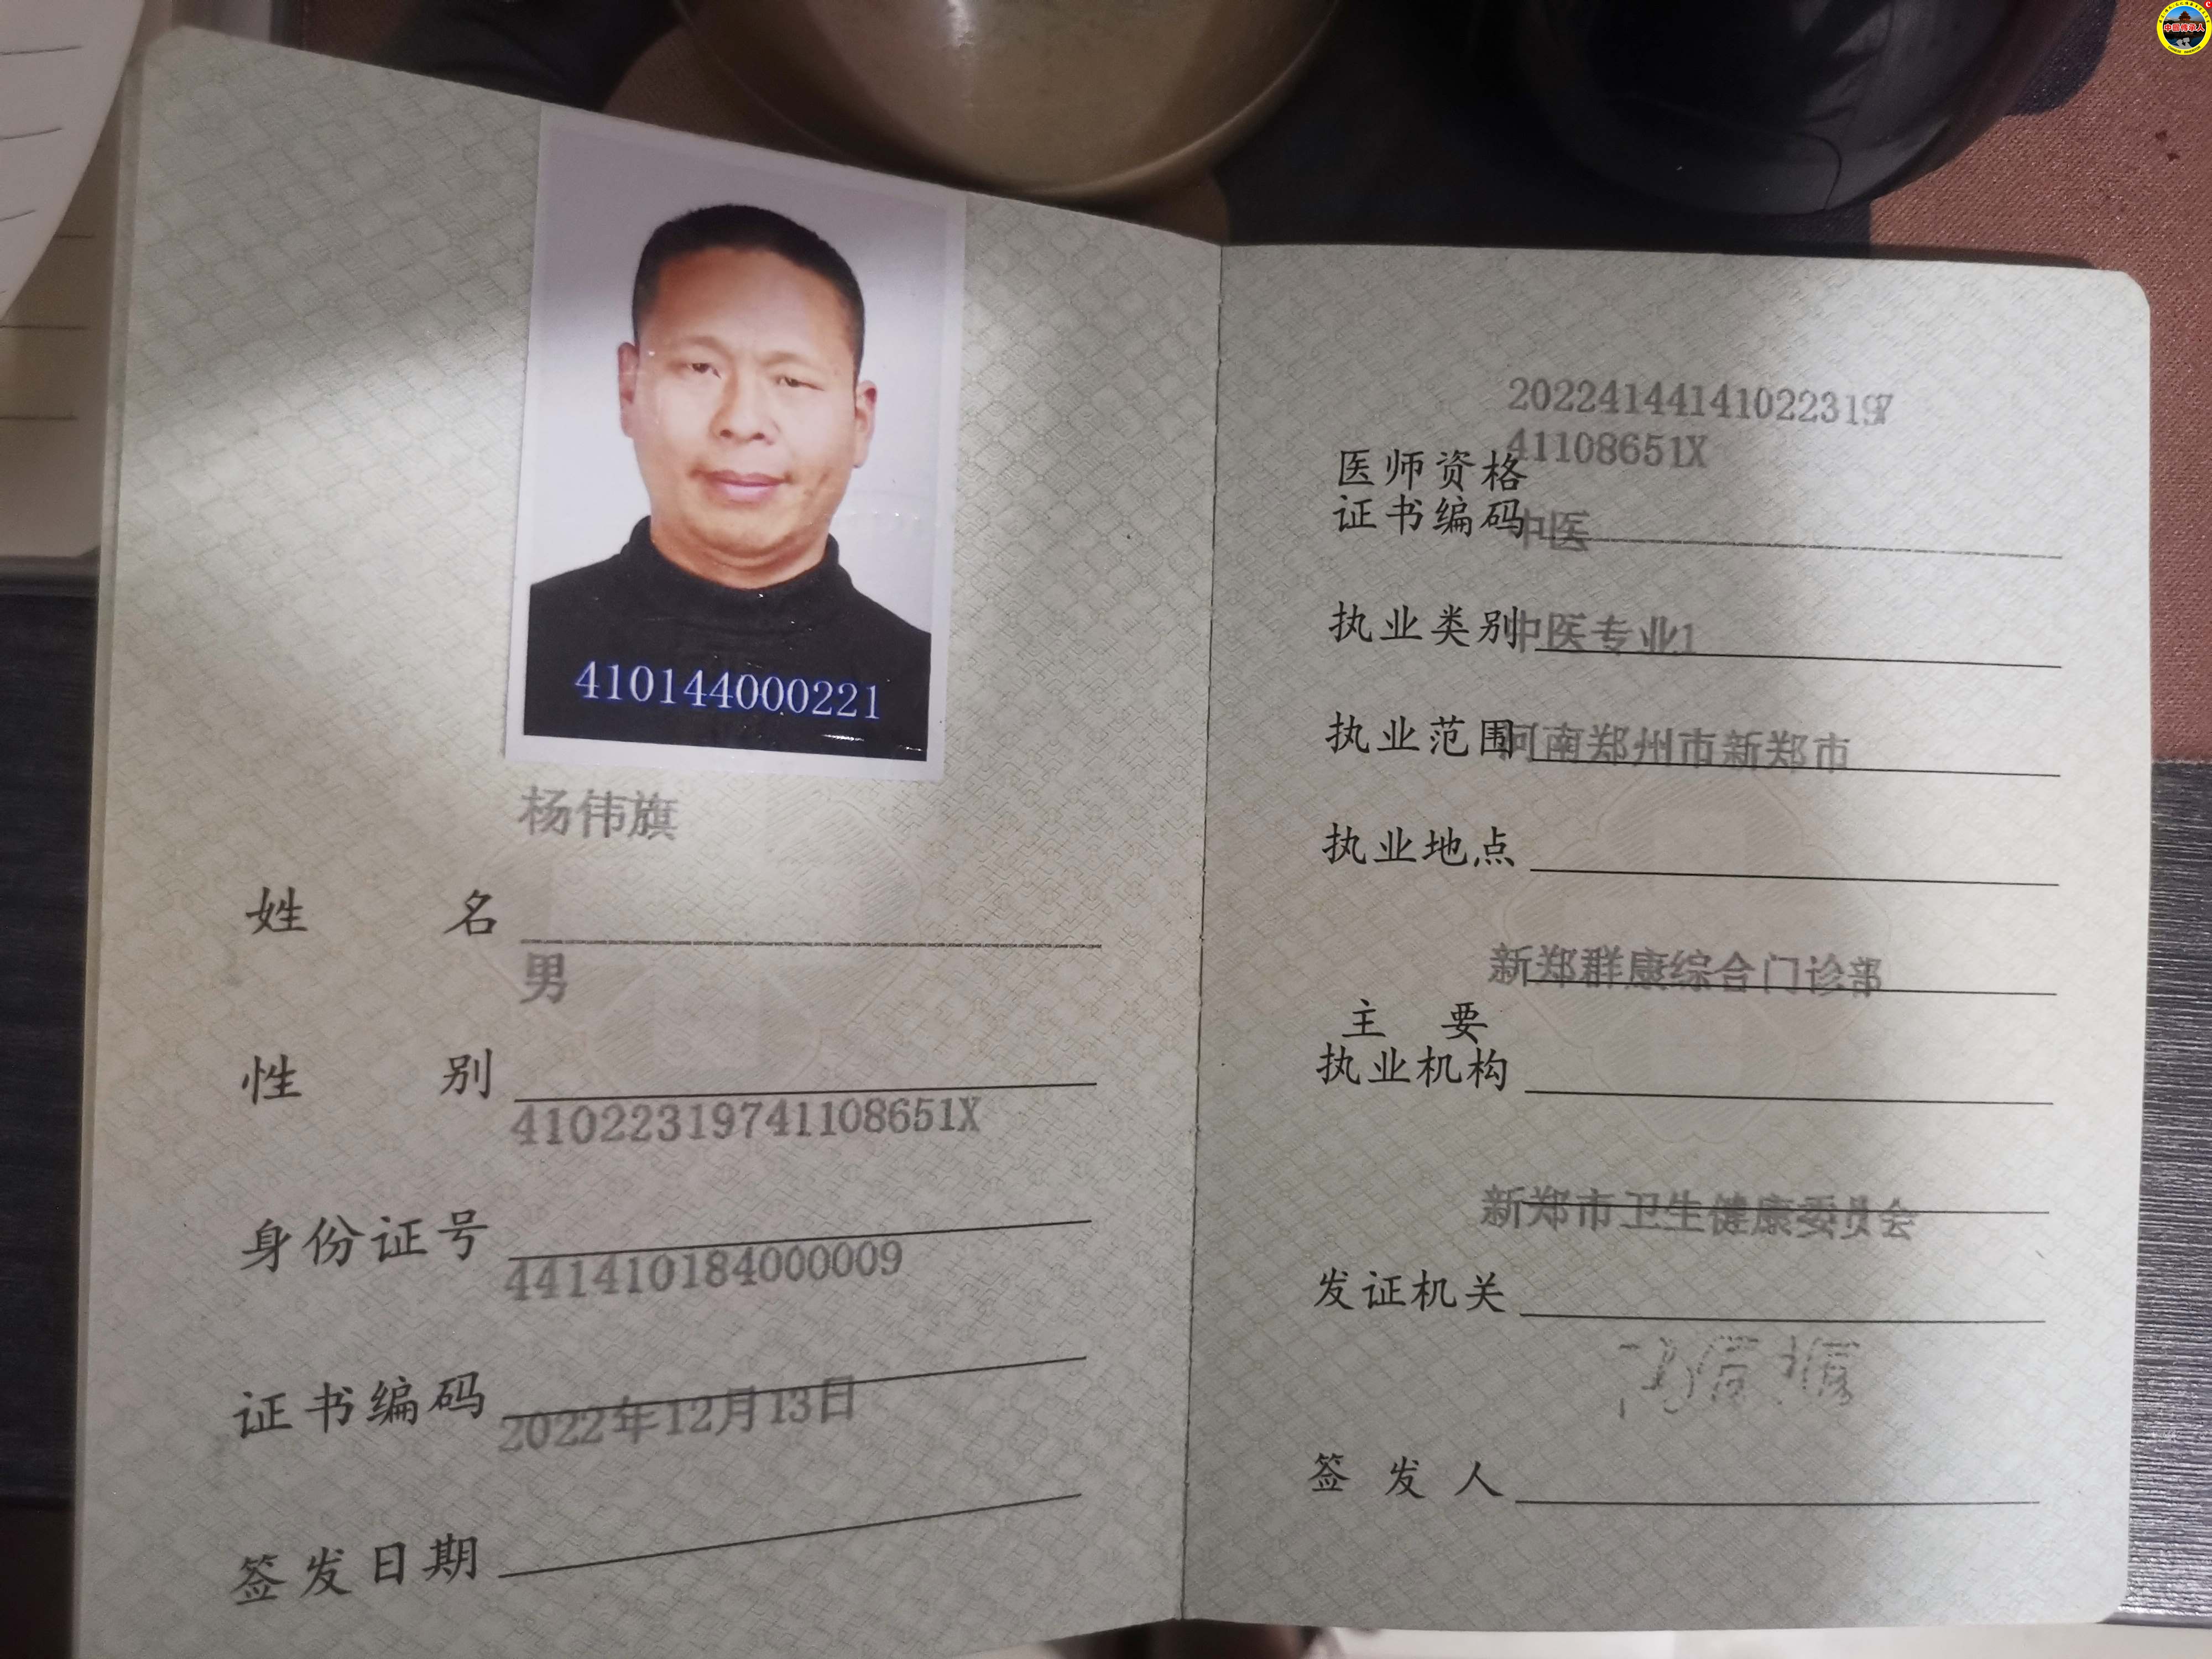 中医传承人
410144000221
杨伟旗
姓 名
男
性 别
41022319741108651X
身份证号
441410184000009
证书编码
2022年12月13日
签发日期
202241441410223197
41108651X
医师资格
证书编码
中医
执业类别
中医专业1
执业范围
河南郑州市新郑市
执业地点
新郑群康综合门诊部
主 要
执业机构
新郑市卫生健康委员会
发证机关
签 发 人